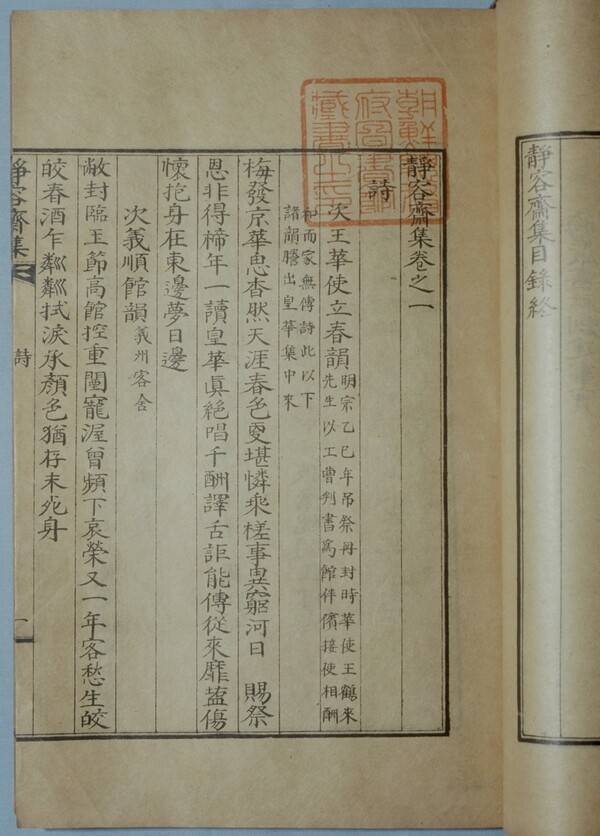 靜容齋集目錄終
朝鮮總督
府圖書館
藏書之印
靜容齋集卷之一
詩
次王華使立春韻
明宗乙巳年吊祭冊封時華使王鶴來
先生以工曹判書爲館伴儐接使相酬
和而家無傳詩此以下
諸韻謄出皇華集中來
梅發京華思杳然天涯春色更堪憐乘槎事異窮河日 賜祭
恩非得楴年一讀皇華眞絶唱千酬譯舌詎能傳從來靡盬傷
懷抱身在東邊夢日邊
次義順館韻 義州客舍
敝封臨玉節高館控重闉寵渥曾頻下哀榮又一年客愁生皎
皎春酒乍粼粼拭淚承顏色猶存未死身
靜容齋集
詩
一